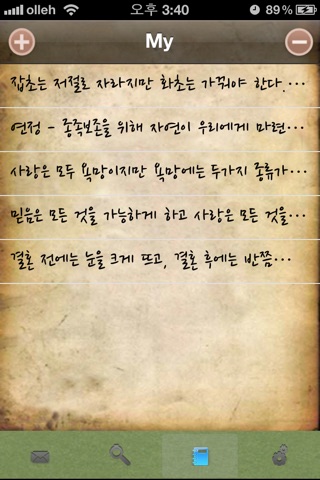 olleh 오후 3:40 89%
My
잡초는 저절로 자라지만 화초는 가꿔야 한다....
연정 - 종족보존을 위해 자연이 우리에게 마련...
사랑은 모두 욕망이지만 욕망에는 두가지 종류가...
믿음은 모든 것을 가능하게 하고 사랑은 모든 것을...
결혼 전에는 눈을 크게 뜨고, 결혼 후에는 반쯤...